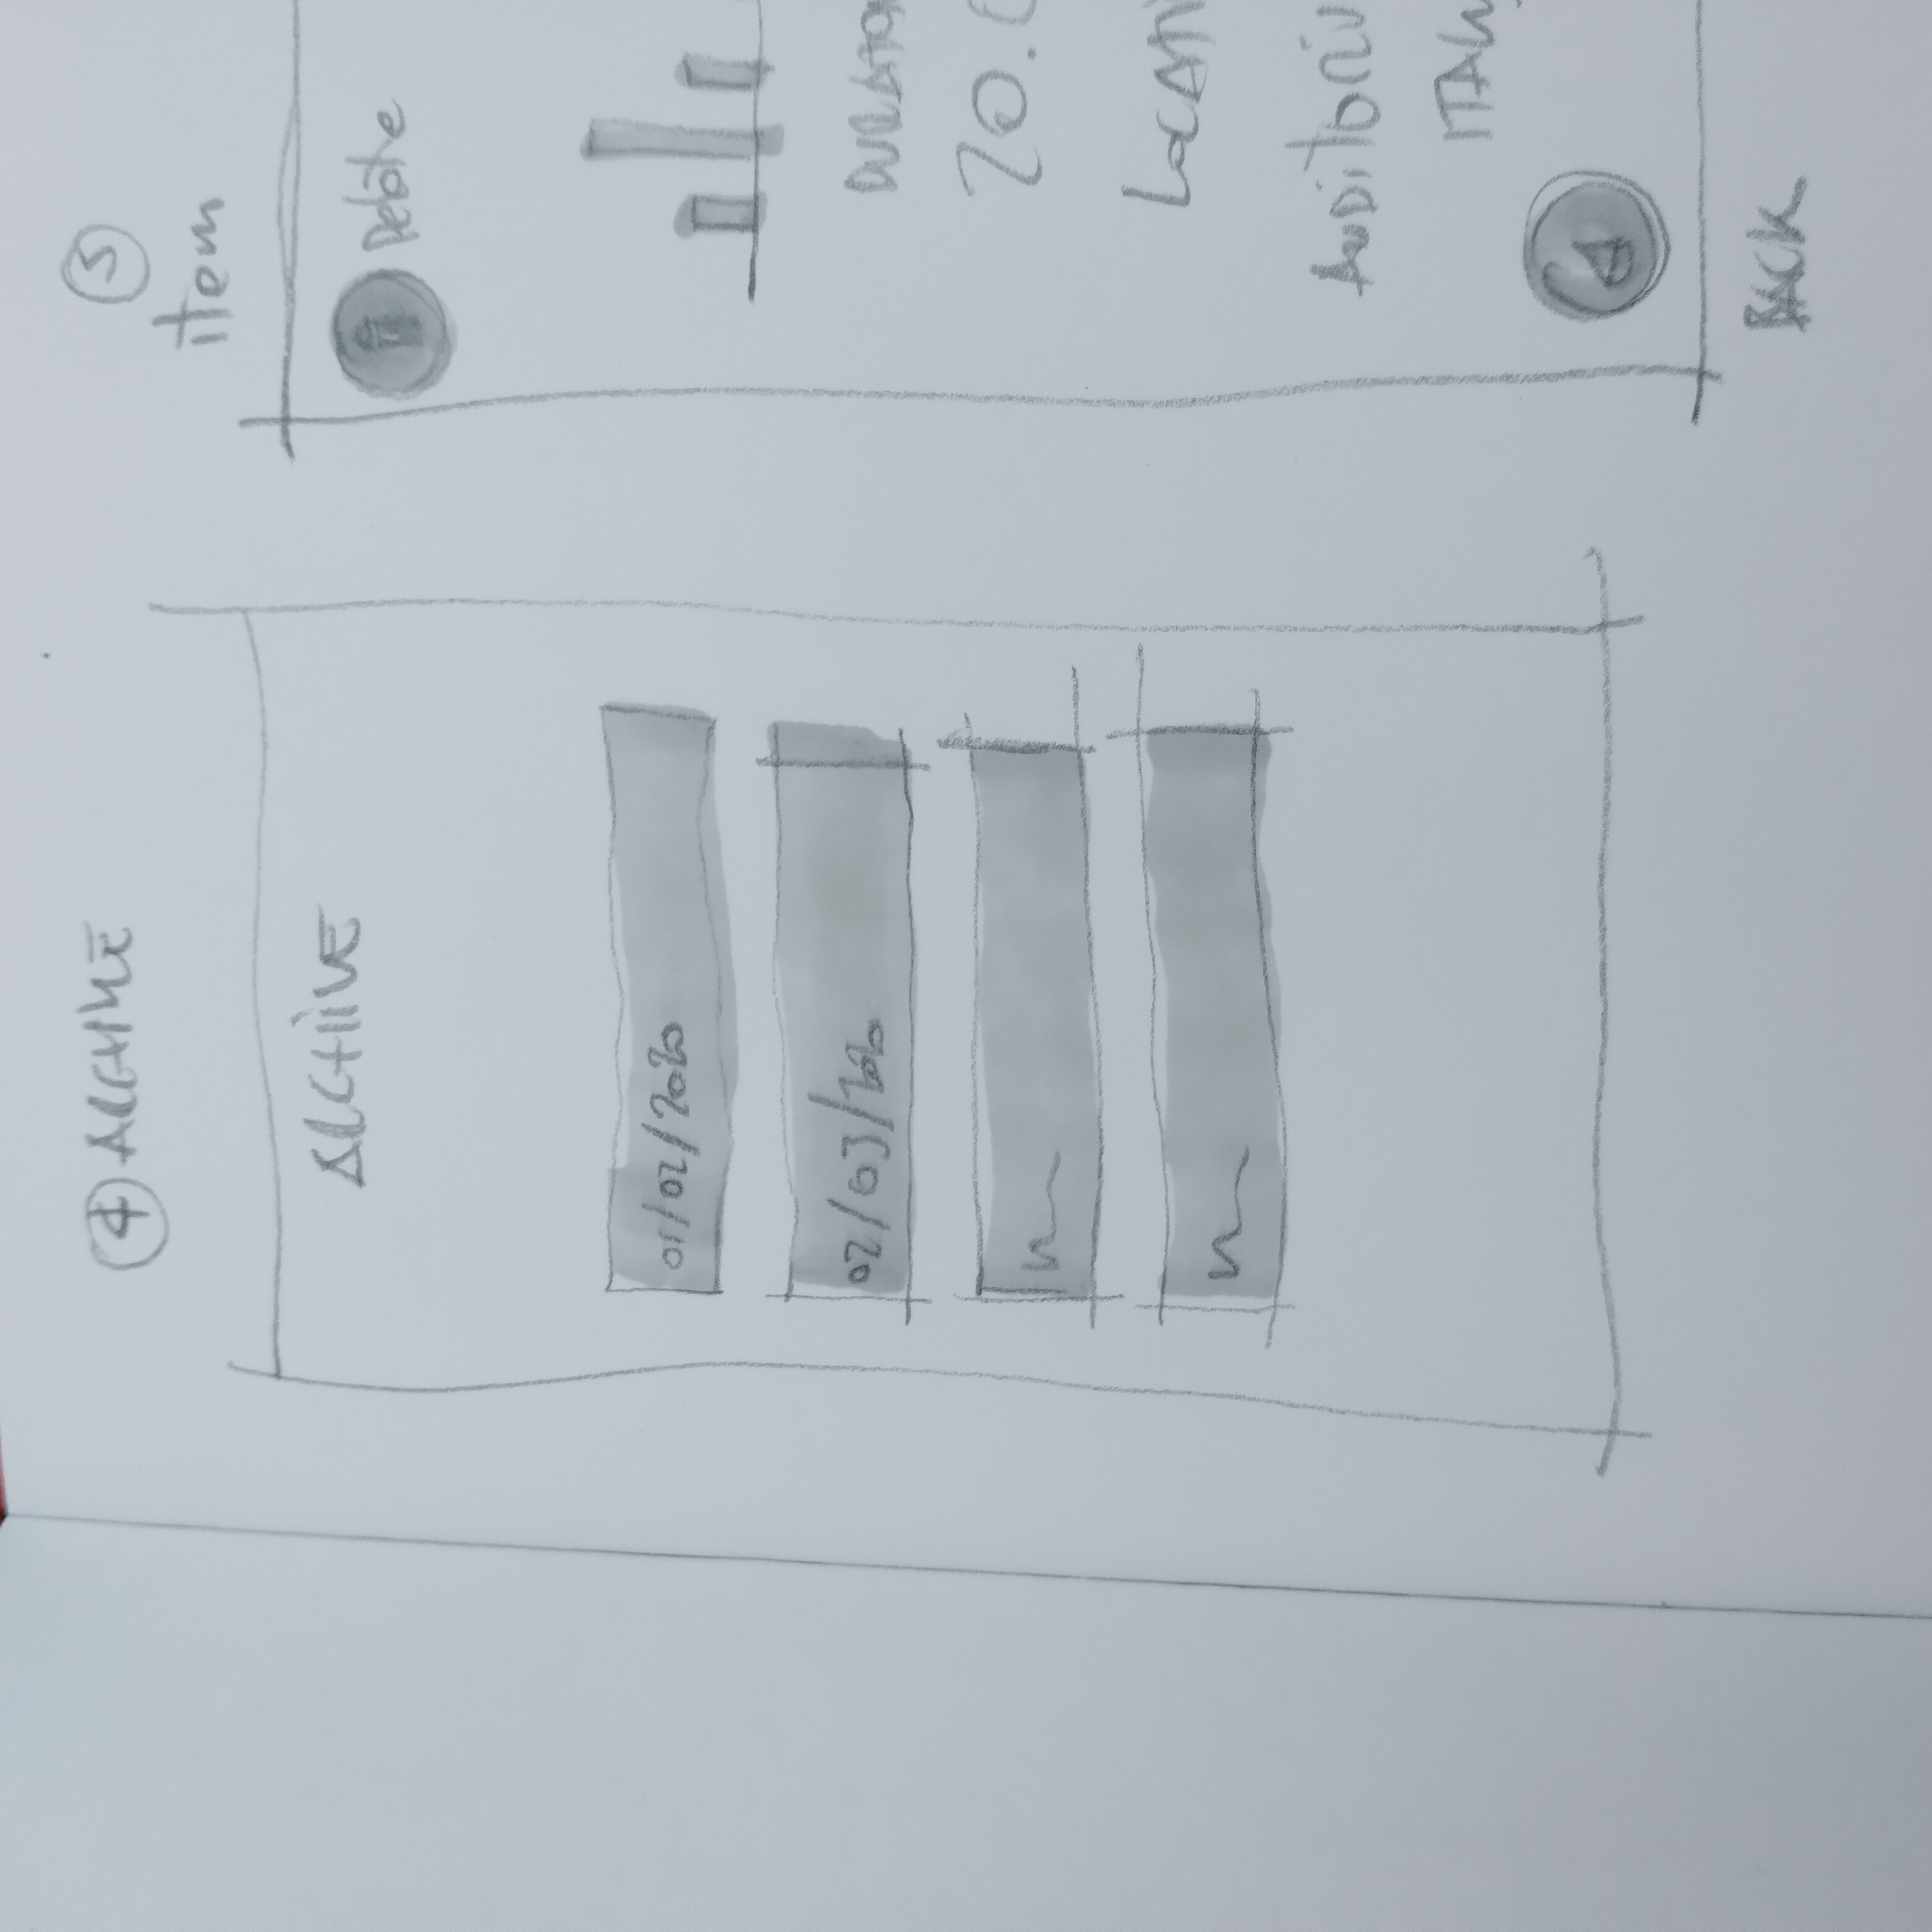 4 ARCHIVE
ARCHIVE
01/02/2020
02/03/2020
5
item
Delete
DURATION
20.0
LOCATI
AUDITORIU
ITALY
BACK